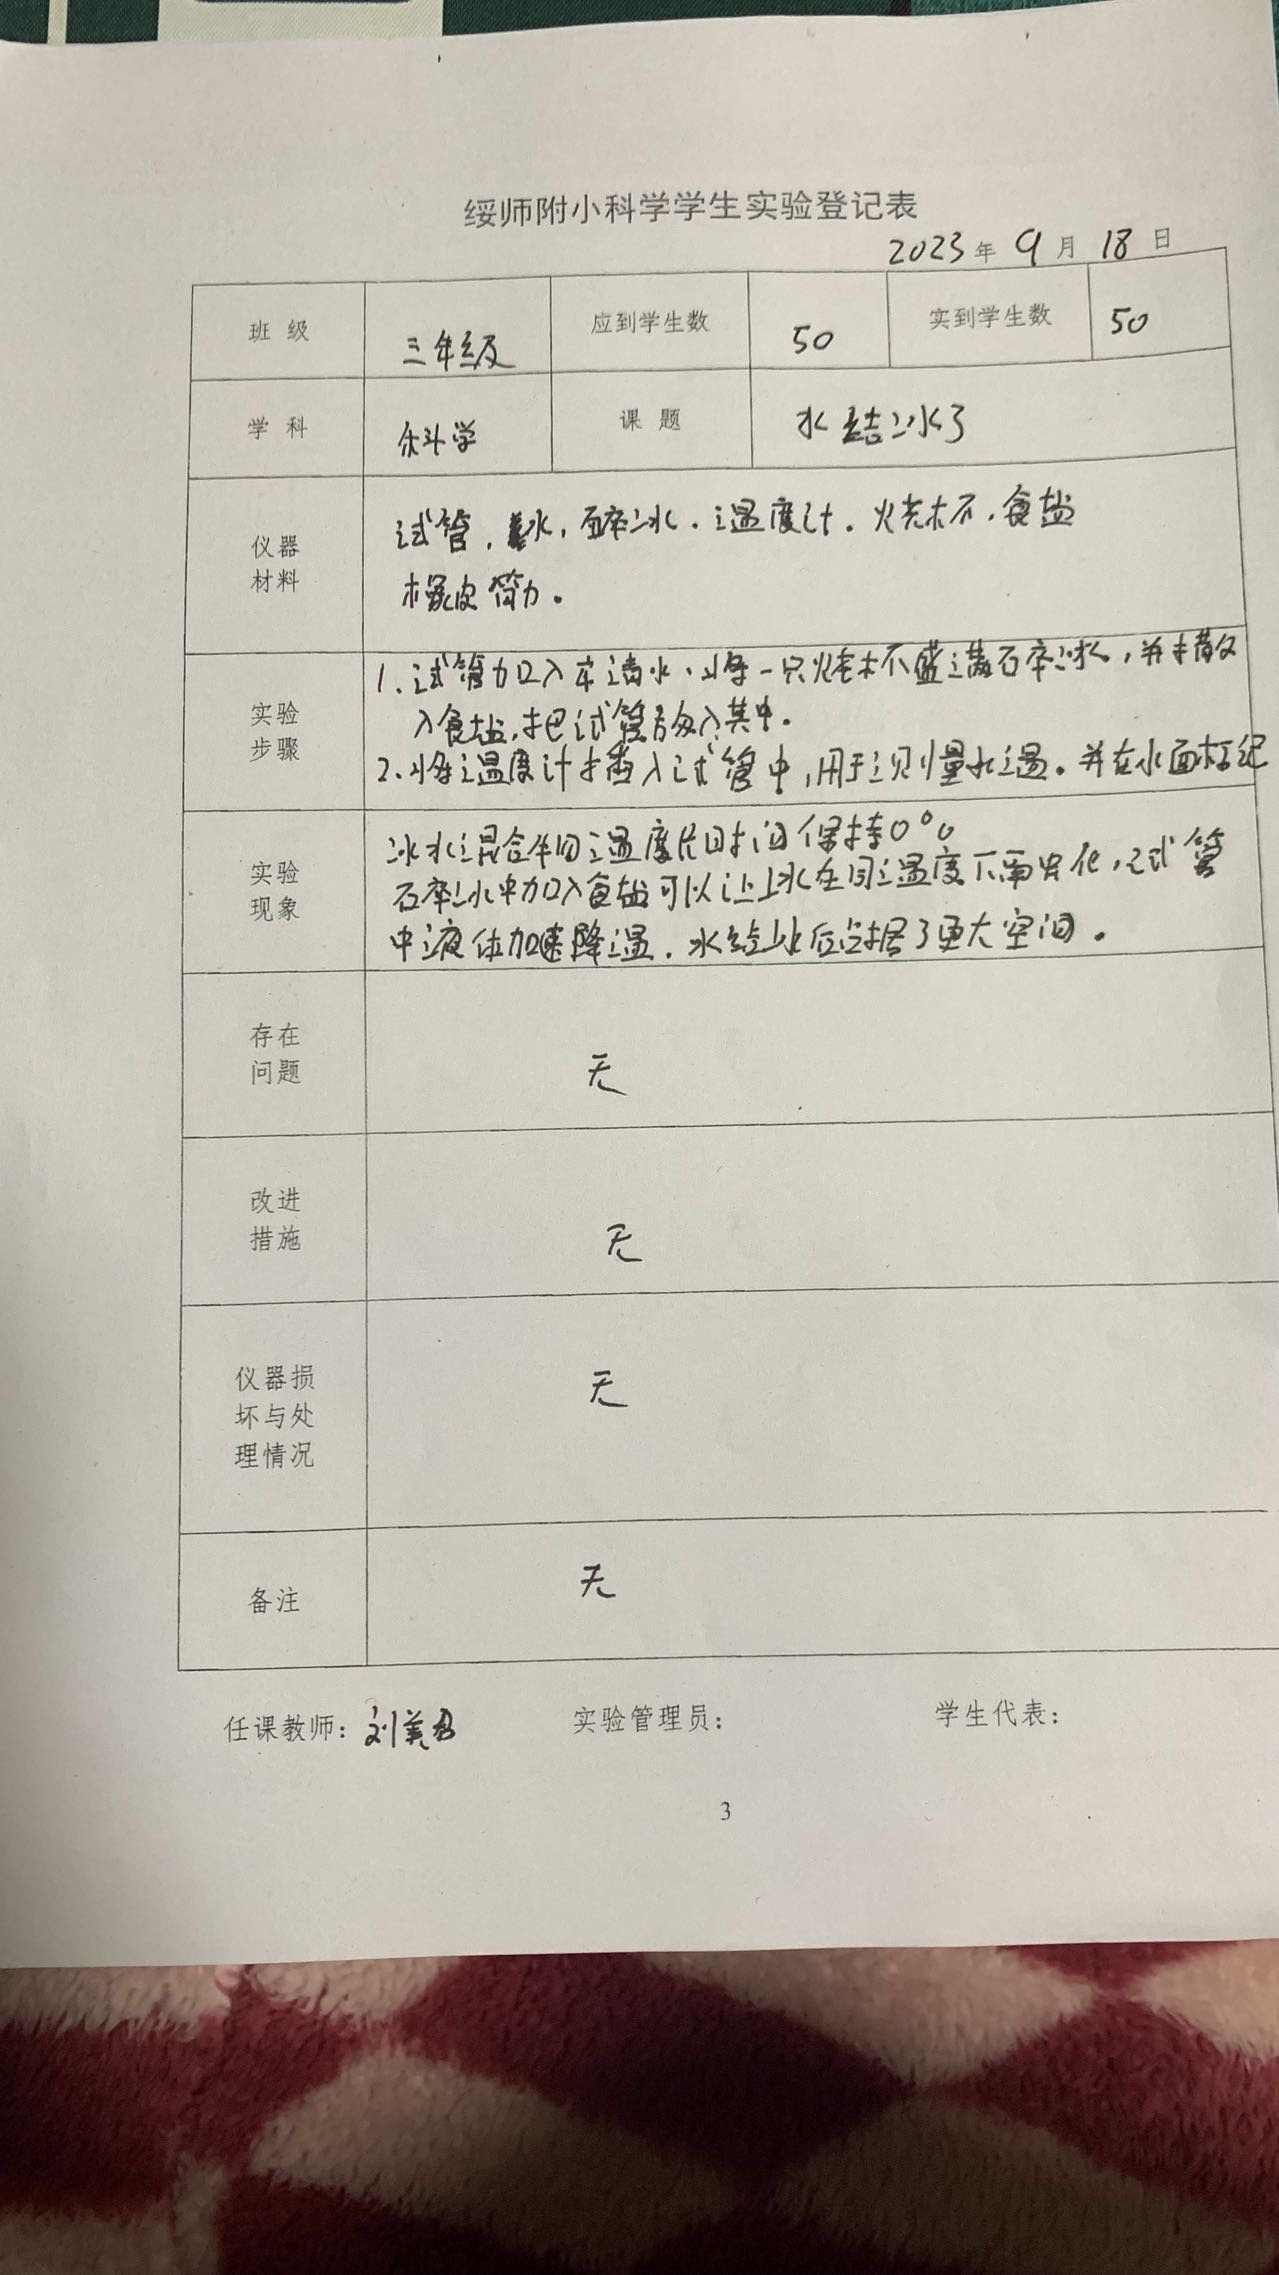 绥师附小科学学生实验登记表
2023年9月18日
班 级 三年级 应到学生数 50 实到学生数 50
学 科 科学 课 题 水结冰了
仪器
材料
试管,水,碎冰.温度计.烧杯,食盐
橡皮筋。
实验
步骤
1.试管加入清水,将一只烧杯盛满碎冰,并撒
入食盐,把试管放入其中。
2.将温度计插入试管中,用于测量水温。并在水面标记
实验
现象
冰水混合 温度 保持0°
碎冰中加入食盐可以让冰在 温度下 化,试管
中液体加速降温.水结冰后占据了更大空间。
存在
问题
无
改进
措施
无
仪器损
坏与处
理情况
无
备注
无
任课教师:刘美 实验管理员: 学生代表:
3